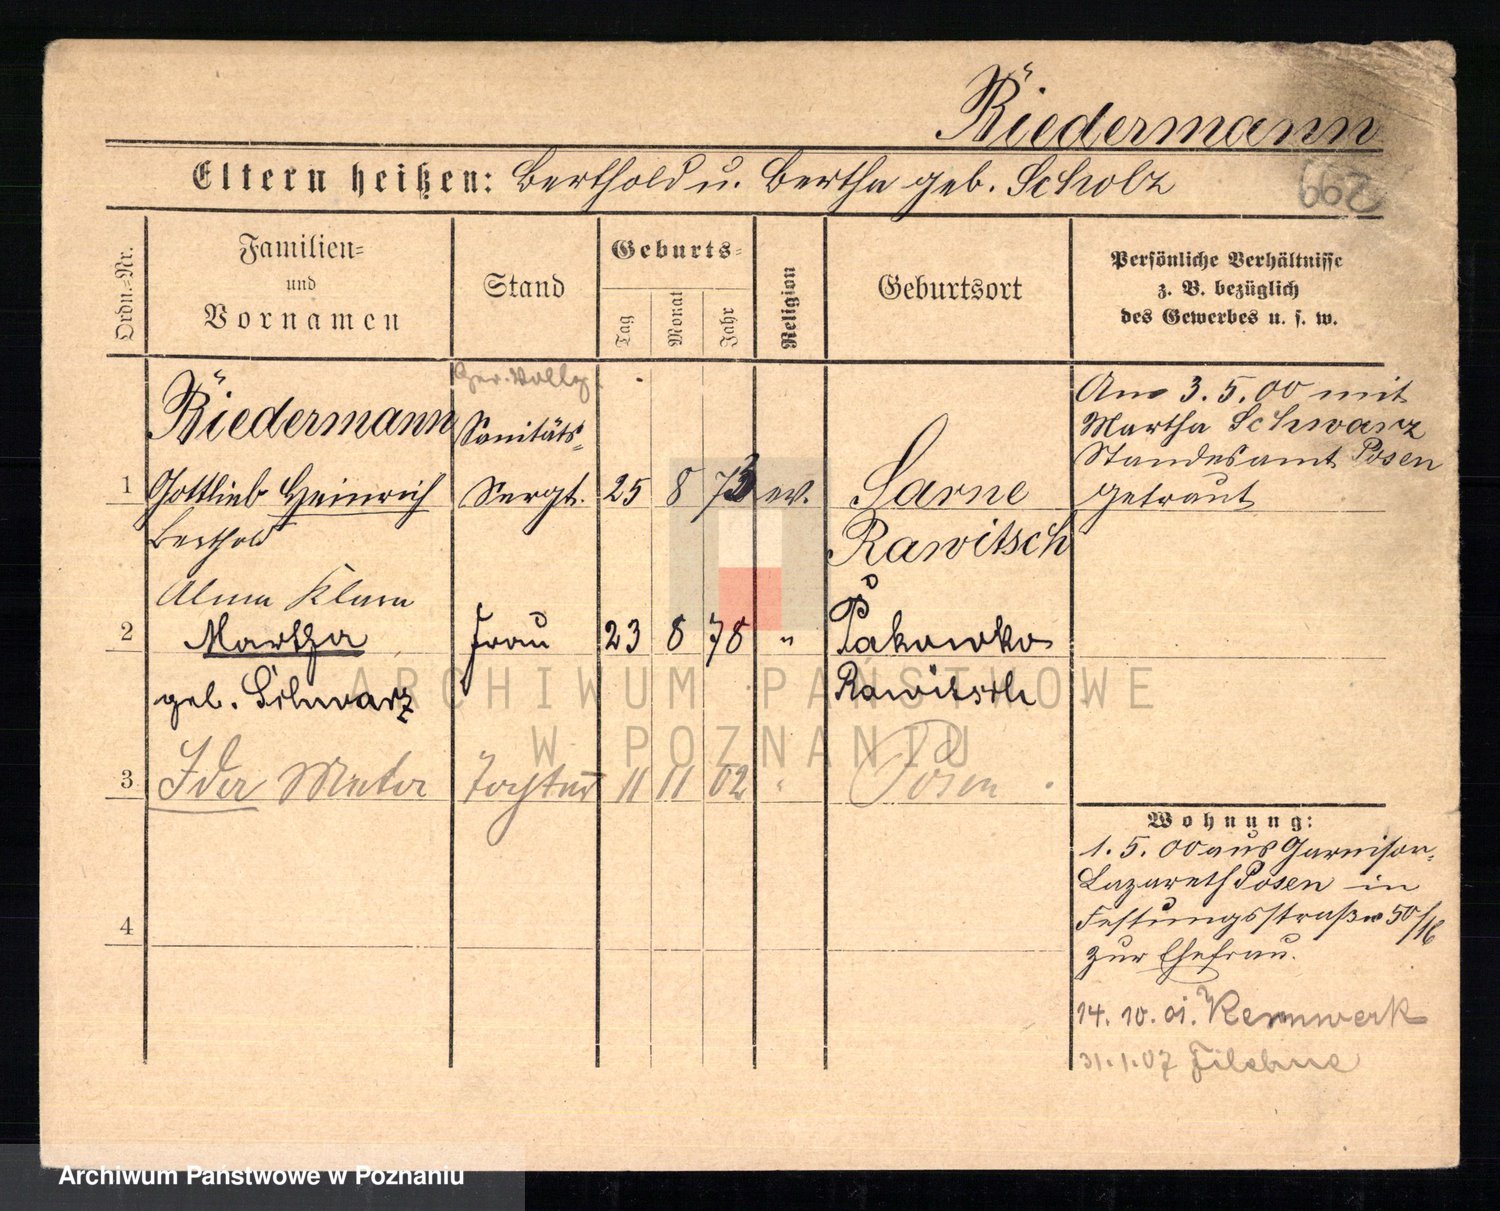 Riedermann
Eltern heißen: Berthold u. Bertha geb. Scholz
662
Ordn.=Nr.
Familien=
und
Vornamen
Stand
Geburts=
Tag
Monat
Jahr
Religion
Geburtsort
Persönliche Verhältnisse
z. B. bezüglich
des Gewerbes u. s. w.
Ger. Vollz.
Riedermann Sanitäts-
1 Gottlieb Heinrich Sergt. 25 8 73 ev. Sarne
Berthold Rawitsch
Am 3.5.00 mit
Martha Schwarz
Standesamt Posen
getraut
Alma Klara
2 Martha Frau 23 8 78 " Pakowko
geb. Schwarz Rawitsch
3 Ida Meta Tochter 11 11 02 " Posen
4
Wohnung:
1.5.00 aus Garnison-
Lazareth Posen in
Festungsstraße 50/16
zur Ehefrau.
14.10.01. Kernwerk
31.1.07 Filehne
ARCHIWUM PAŃSTWOWE
W POZNANIU
Archiwum Państwowe w Poznaniu